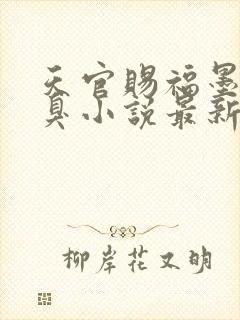 天官赐福墨
臭小说最新
柳岸花又明